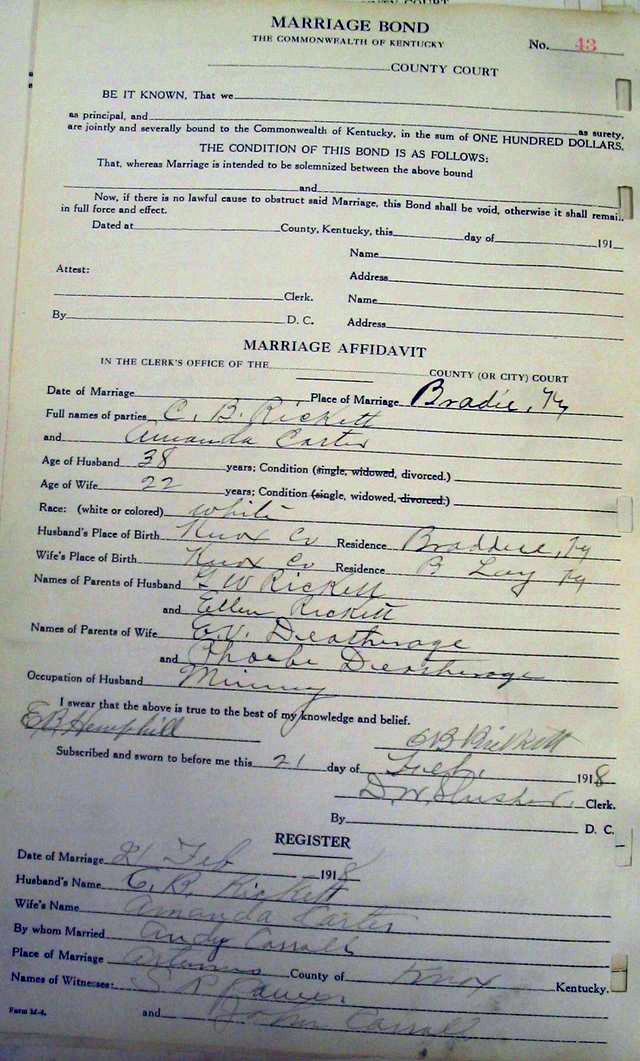 MARRIAGE BOND
THE COMMONWEALTH OF KENTUCKY
No. 43
COUNTY COURT
BE IT KNOWN, That we
as principal, and as surety,
are jointly and severally bound to the Commonwealth of Kentucky, in the sum of ONE HUNDRED DOLLARS.
THE CONDITION OF THIS BOND IS AS FOLLOWS:
That, whereas Marriage is intended to be solemnized between the above bound
and
Now, if there is no lawful cause to obstruct said Marriage, this Bond shall be void, otherwise it shall remai..
in full force and effect.
Dated at County, Kentucky, this day of 191
Name
Attest:
Address
Clerk. Name
By D. C. Address
MARRIAGE AFFIDAVIT
IN THE CLERK'S OFFICE OF THE COUNTY (OR CITY) COURT
Date of Marriage Place of Marriage Bradie, Ky
Full names of parties C. B. Rickett
and Amanda Carter
Age of Husband 38 years; Condition (single, widowed, divorced.)
Age of Wife 22 years; Condition (single, widowed, divorced.)
Race: (white or colored) white
Husband's Place of Birth Knox Co Residence Ky
Wife's Place of Birth Knox Co Residence Ky
Names of Parents of Husband G W Rickett
and Ellen Rickett
Names of Parents of Wife Deatherage
and Phoebe Deatherage
Occupation of Husband Mining
I swear that the above is true to the best of my knowledge and belief.
E B Hemphill C B Rickett
Subscribed and sworn to before me this 21 day of Feb. 1918
D. W. Slusher, Clerk.
By D. C.
REGISTER
Date of Marriage 21 Feb 1918
Husband's Name C. B. Rickett
Wife's Name Amanda Carter
By whom Married Andy Carroll
Place of Marriage Artemus County of Knox Kentucky.
Names of Witnesses: S R
and John Carroll
Form M-4.